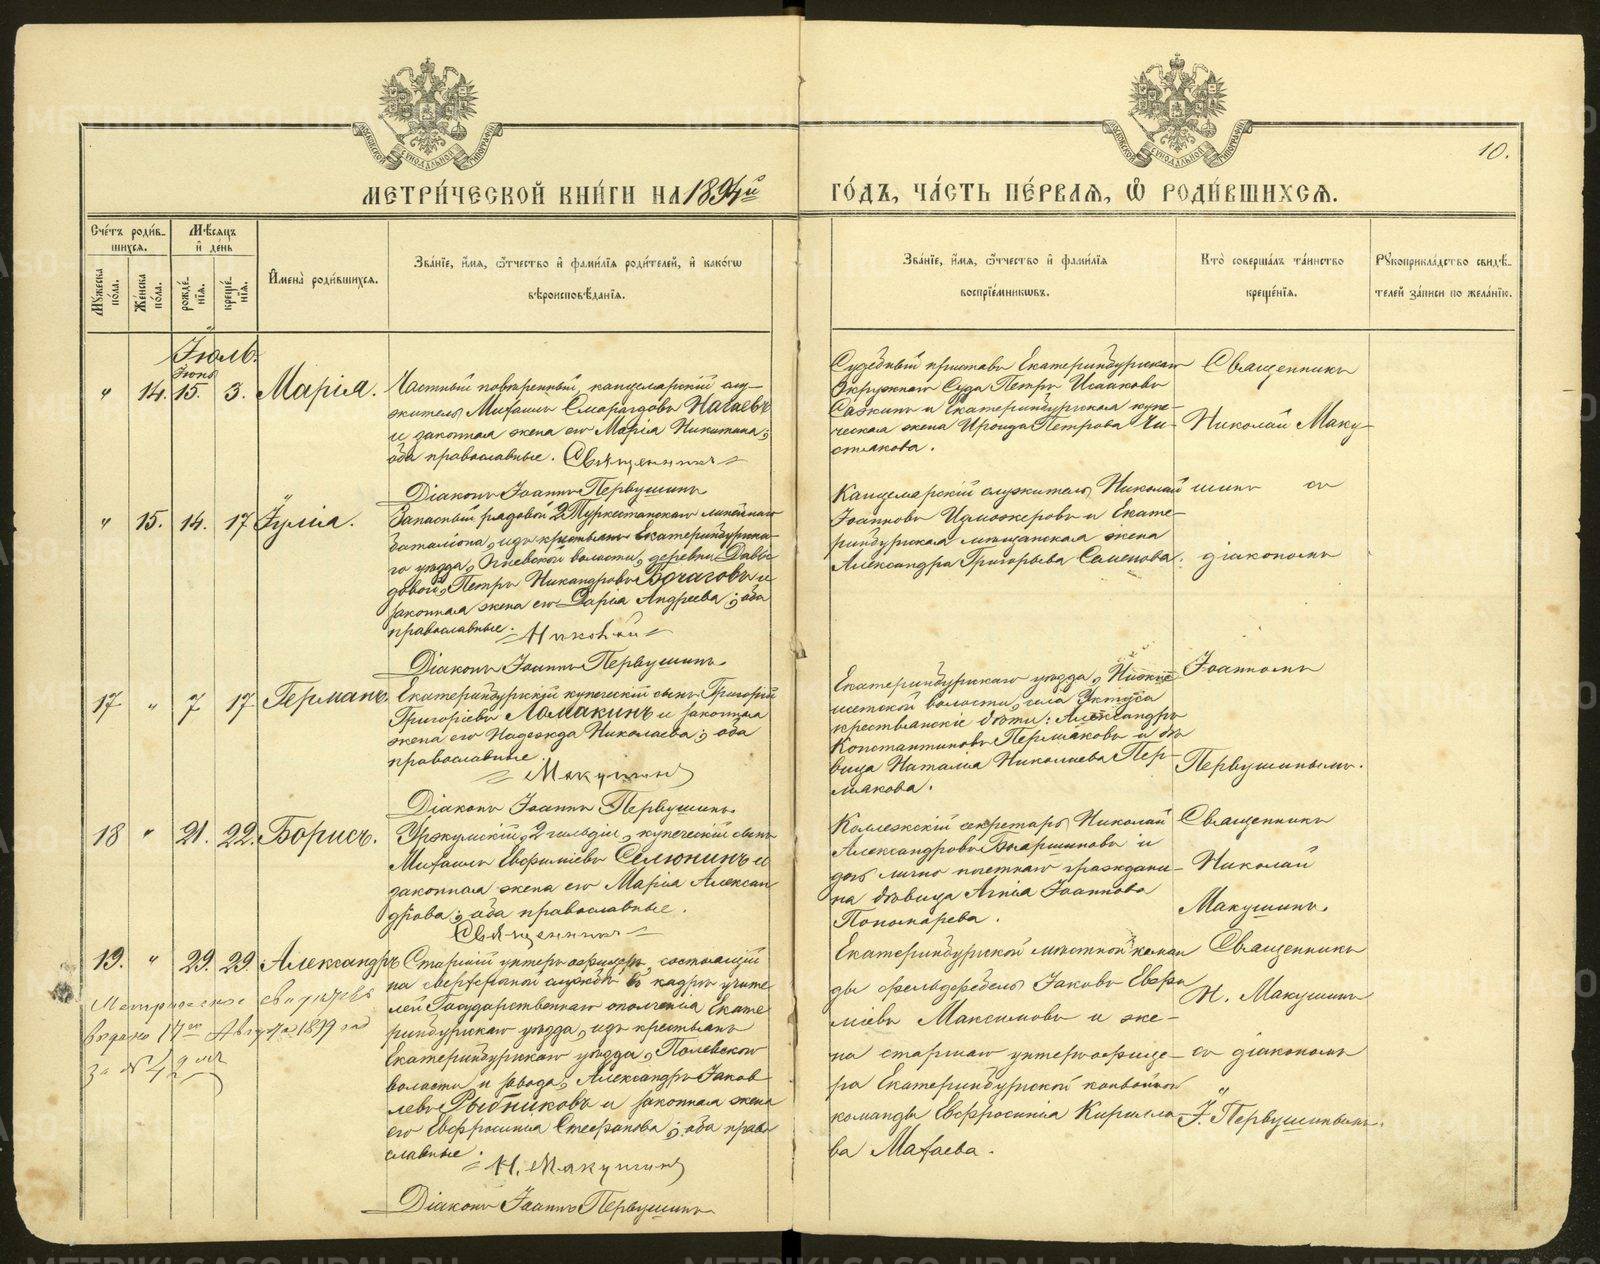 МЕТРИ́ЧЕСКОЙ КНИ́ГИ НА 1894й
ГО́ДЪ, ЧА́СТЬ ПЕ́РВАЯ, Ѡ҆ РОДИ́ВШИХСЯ.
10.
Сче́тъ роди́в-
шихся.
Мѣ́сяцъ
и҆ день
Му́жеска
по́ла.
Же́нска
по́ла.
рожде́-
нїя.
креще́-
нїя.
И҆мена̀ роди́вшихся.
Зва́нїе, и҆́мя, ѻ҆́тчество и҆ фами́лїя роди́телей, и҆ како́гѡ
вѣроисповѣ́данїя.
Зва́нїе, и҆́мя, ѻ҆́тчество и҆ фами́лїя
воспрїе́мниковъ.
Кто̀ соверша́лъ та́инство
креще́нїя.
Рукоприкла́дство свидѣ́-
телей за́писи по жела́нїю.
Іюль.
Іюнь
" 14. 15. 3. Марія.
Частный повѣренный, канцелярскій слу-
житель Михаилъ Смарагдовъ Нагаевъ
и законная жена его Марія Никитина;
оба православные. Священникъ
Діаконъ Іоаннъ Первушинъ
Судебный приставъ Екатеринбургскаго
Окружнаго Суда Петръ Исааковъ
Сажинъ и Екатеринбургская купе-
ческая жена Ираида Петрова Чи-
стякова.
Священникъ
Николай Маку-
" 15. 14. 17 Іулія.
Запасный рядовой 2 Туркестанскаго линейнаго
баталіона, изъ крестьянъ Екатеринбургска-
го уѣзда, волости, деревни Давы-
довой, Петръ Никандровъ Бочаговъ и
законная жена его Дарія Андреева; оба
православные. Николай
Діаконъ Іоаннъ Первушинъ.
Канцелярскій служитель Николай
Іоанновъ Изможеровъ и Екате-
ринбургская мѣщанская жена
Александра Григорьева Семенова.
шинъ съ
діакономъ
17 " 7 17 Германъ.
Екатеринбургскій купеческій сынъ Григорій
Григорьевъ Ломакинъ и законная
жена его Надежда Николаева; оба
православные.
Макушинъ
Діаконъ Іоаннъ Первушинъ.
Екатеринбургскаго уѣзда, Нижне-
исетской волости, села Уктуса
крестьянскіе дѣти: Александръ
Константиновъ Пермяковъ и дѣ-
вица Наталія Николаева Пер-
мякова.
Іоанномъ
Первушинымъ.
18 " 21. 22. Борисъ.
Уржумскій, 2 гильдіи, купеческій сынъ
Михаилъ Евфиміевъ Селюнинъ и
законная жена его Марія Алексан-
дрова; оба православные.
Священникъ
Коллежскій секретарь Николай
Александровъ и
дочь лично почетнаго граждани-
на дѣвица Агнія Іоаннова
Пономарева.
Священникъ
Николай
Макушинъ.
19. " 29. 29. Александръ
Старшій унтеръ-офицеръ, состоящій
на сверхсрочной службѣ въ кадрѣ учите-
лей Государственнаго ополченія Екате-
ринбургскаго уѣзда, изъ крестьянъ
Екатеринбургскаго уѣзда, Полевской
волости и завода, Александръ Іаков-
левъ Рыбниковъ и законная жена
его Евфросинія Стефанова; оба право-
славные.
Н. Макушинъ
Діаконъ Іоаннъ Первушинъ
Метрическое свидѣт.
выдано 17го Августа 1899 год
за № 42
Екатеринбургской мѣстной коман-
ды фельдфебель Іаковъ Евфи-
міевъ Максимовъ и же-
на старшаго унтеръ-офице-
ра Екатеринбургской конвойной
команды Евфросинія Кирилло-
ва Махаева.
Священникъ
Н. Макушинъ
съ діакономъ
І. Первушинымъ.